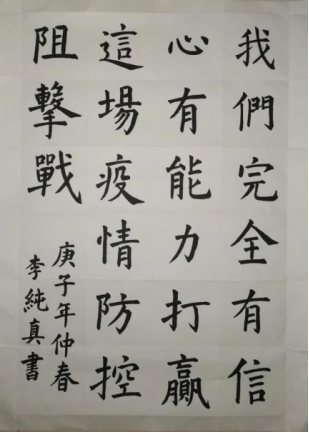 我們完全有信
心有能力打贏
這場疫情防控
阻擊戰
庚子年仲春
李純真書